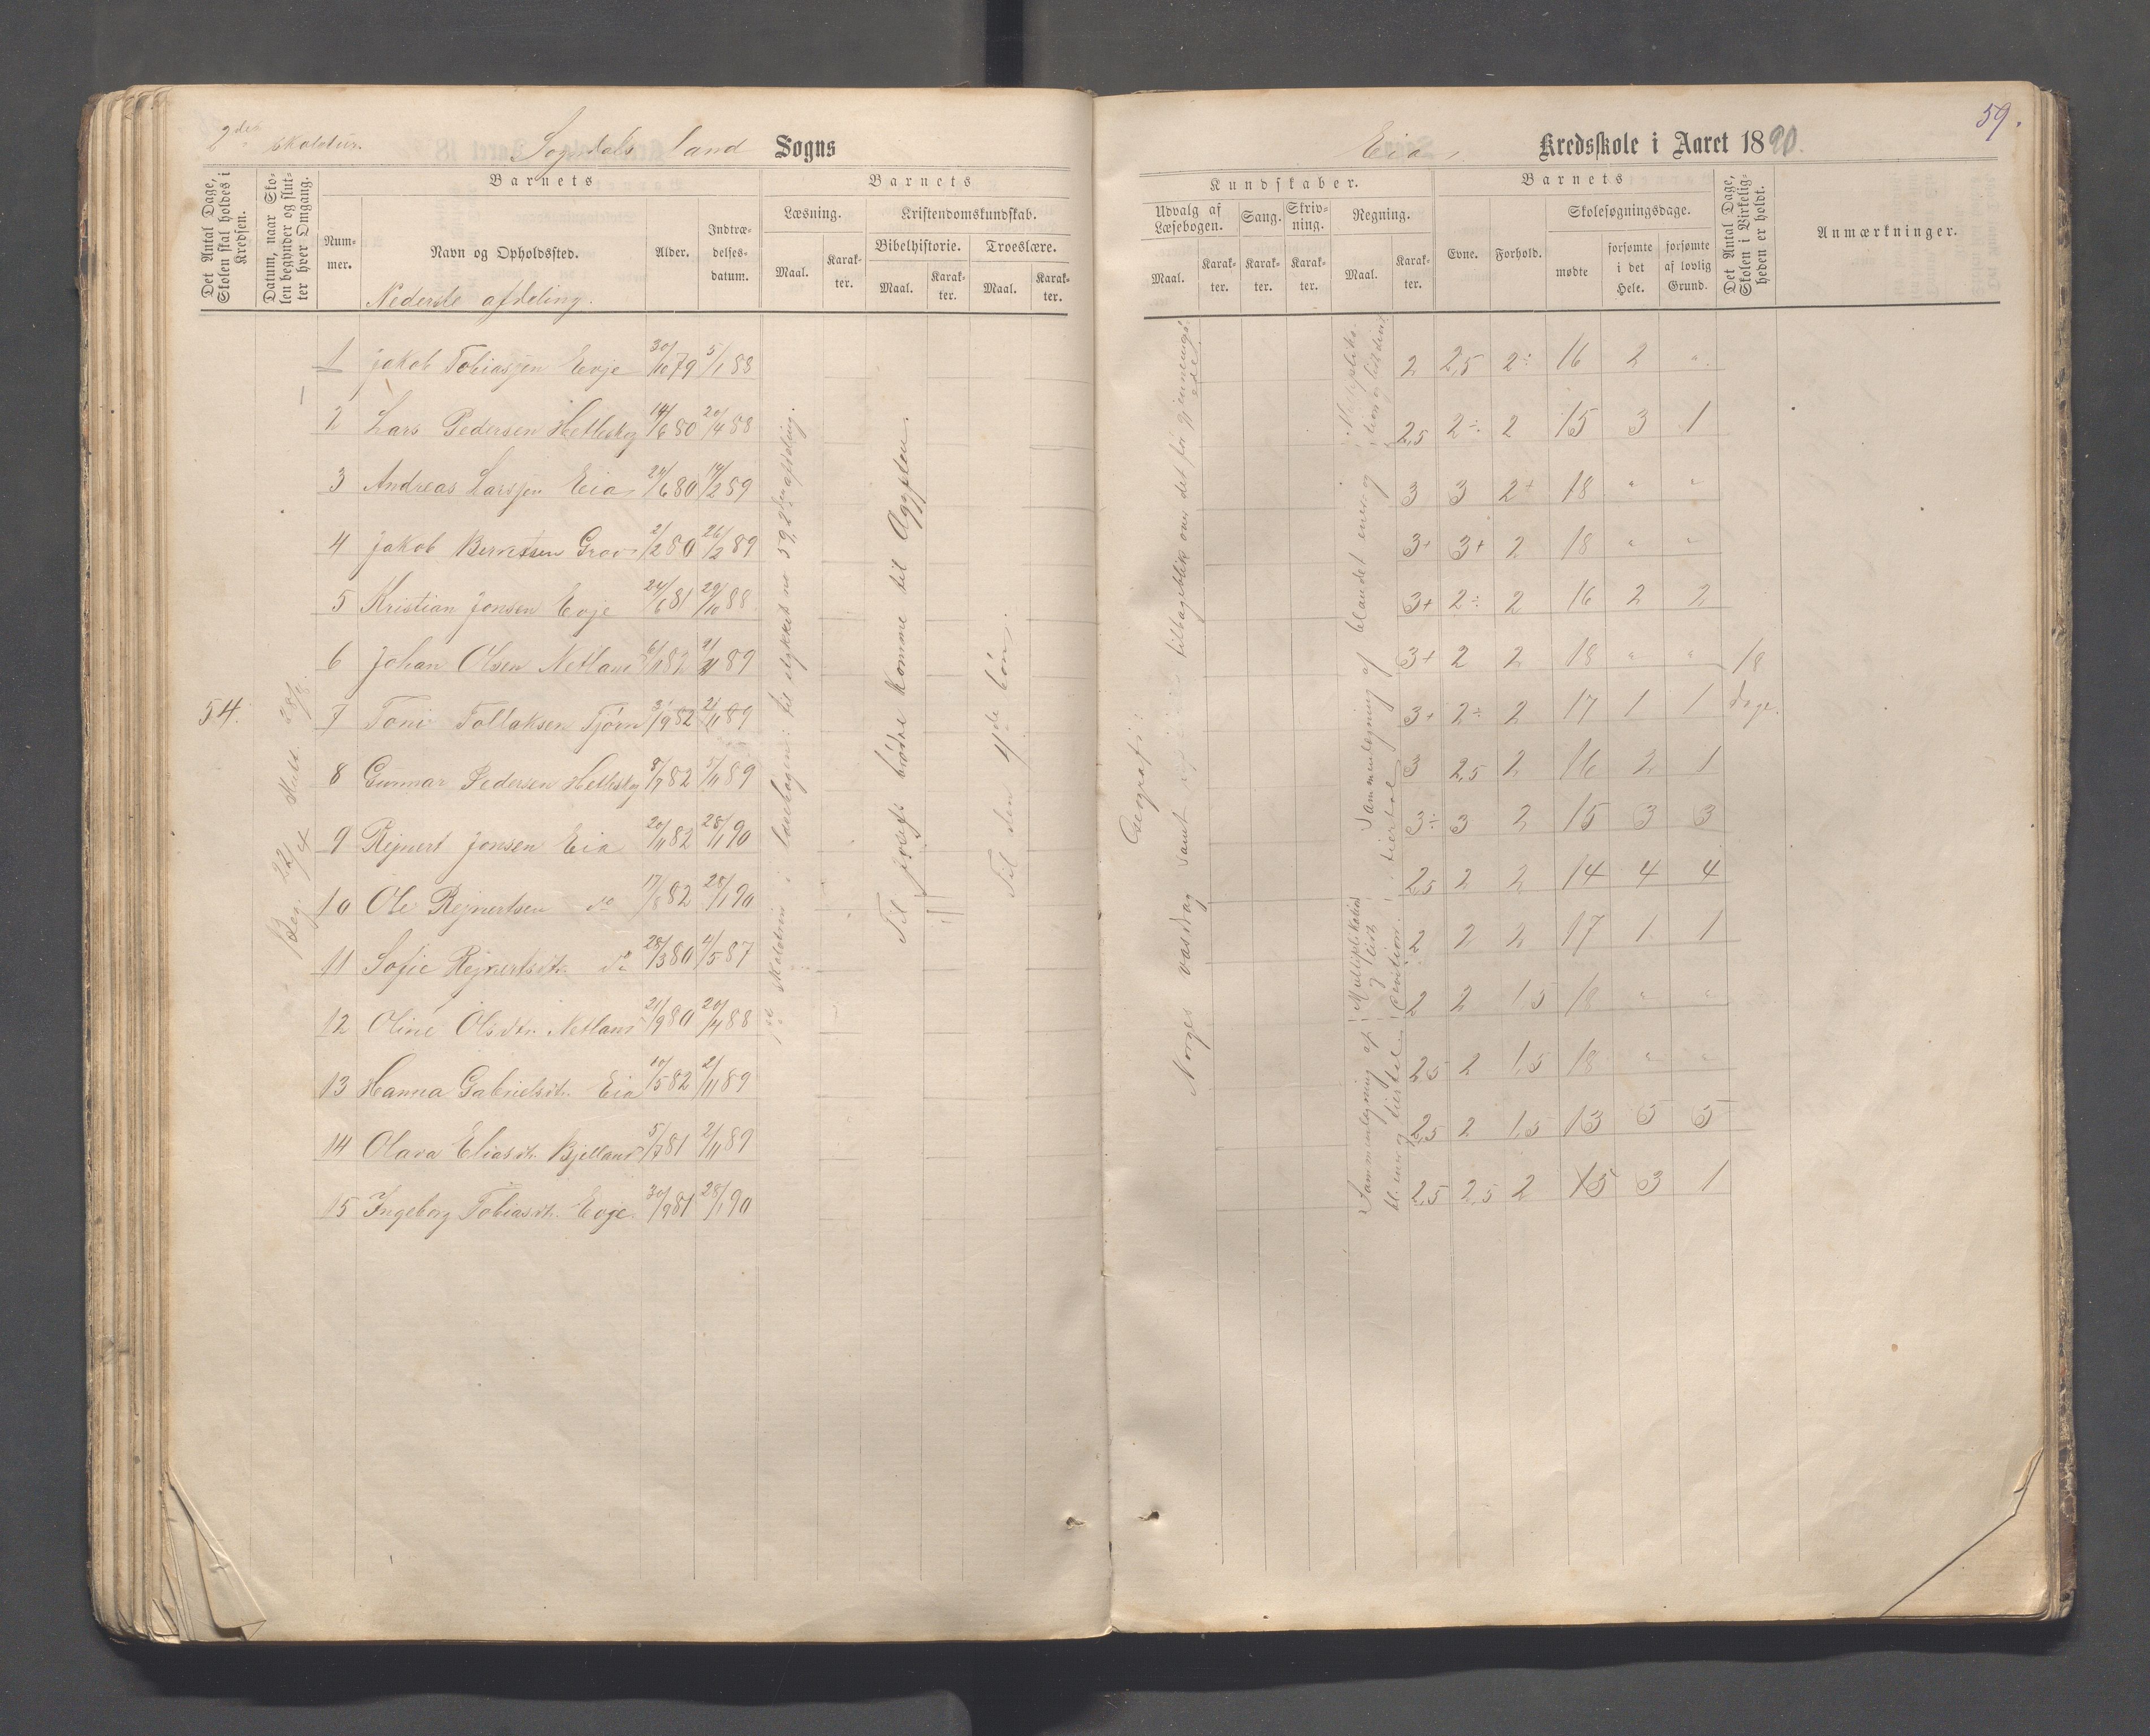 59.
2de skoletur. Sogndals land Sogns
Eia Kredsskole i Aaret 1890.
Det Antal Dage, Skolen skal holdes i Kredsen.
Datum, naar Skolen begynder og slutter hver Omgang.
Barnets
Nummer.
Navn og Opholdssted.
Alder.
Indtrædelsesdatum.
Barnets
Læsning.
Maal.
Karakter.
Kristendomskundskab.
Bibelhistorie.
Maal.
Karakter.
Troeslære.
Maal.
Karakter.
Kundskaber.
Udvalg af Læsebogen.
Maal.
Karakter.
Sang.
Karakter.
Skrivning.
Karakter.
Regning.
Maal.
Karakter.
Barnets
Evne.
Forhold.
Skolesøgningsdage.
mødte
forsømte i det Hele.
forsømte af lovlig Grund.
Det Antal Dage, Skolen i Virkeligheden er holdt.
Anmærkninger.
Nederste afdeling.
1 Jakob Tobiassen Evje 30/10 79 5/1 88 2 2,5 2÷ 16 2 "
2 Lars Pedersen Hetleskog 14/6 80 20/4 88 2,5 2÷ 2 15 3 1
3 Andreas Larssen Eia 24/6 80 14/2 89 3 3 2+ 18 " "
4 Jakob Berntsen Grov 2/2 80 26/2 89 3+ 3+ 2 18 " "
5 Kristian Jonsen Evje 24/6 81 29/10 88 3+ 2÷ 2 16 2 2
6 Johan Olsen Netland 6/1 82 2/11 89 3+ 2 2 18 " " 18
7 Toni Tollaksen Tjørn 3/9 82 2/11 89 3+ 2÷ 2 17 1 1 dage.
8 Gunnar Pedersen Hetleskog 8/7 82 5/11 89 3 2,5 2 16 2 1
9 Rejnert Jonsen Eia 20/11 82 28/1 90 3÷ 3 2 15 3 3
10 Ole Rejnertsen do 17/8 82 28/1 90 2,5 2 2 14 4 4
11 Sofie Rejnertsdtr. do 28/3 80 4/5 87 2 2 2 17 1 1
12 Oline Olsdtr. Netland 21/9 80 20/4 88 2 2 1,5 18 " "
13 Hanna Gabrielsdtr. Eia 10/5 82 2/11 89 2,5 2 1,5 18 " "
14 Olava Eliasdtr. Bjelland 5/7 81 2/11 89 2,5 2 1,5 13 5 5
15 Ingeborg Tobiasdtr. Evje. 30/9 81 28/1 90 2,5 2,5 2 15 3 1
54.
Beg. 22/4 Slutt. 28/8.
i læsebogen: til stykket no 59, 2den afdeling.
Til Josefs brødre komme til Ægypten.
Til den 4de bøn.
Geografi:
Norges vasdrag samt
tilbageblik over det før gjennemgåede.
Sammenlegning af blandet ener og tiertal.
Multiplikation
Sammenlegning af bl. ener og tiertal.